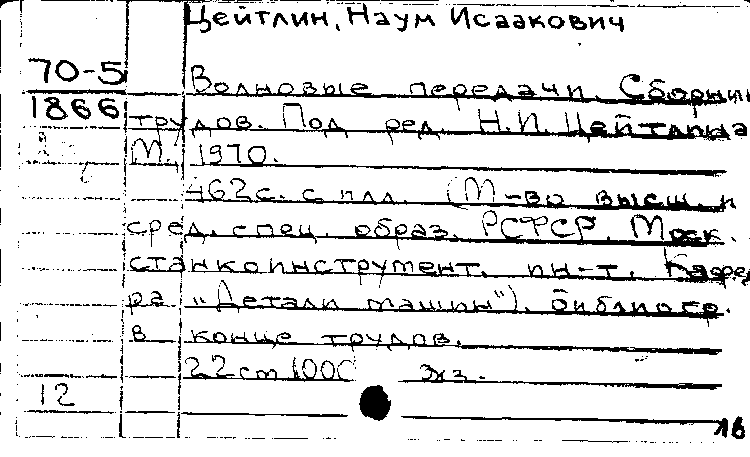 Цейтлин, Наум Исаакович
70-5
1866
Волновые передачи. Сборник
трудов. Под ред. Н.И. Цейтлина
М., 1970.
462с. с илл. (М-во высш. и
сред. спец. образ. РСФСР. Моск.
станкоинструмент. ин-т. Кафед
ра "Детали машин"). Библиогр.
в конце трудов.
22 cm 1000 экз.
12
16